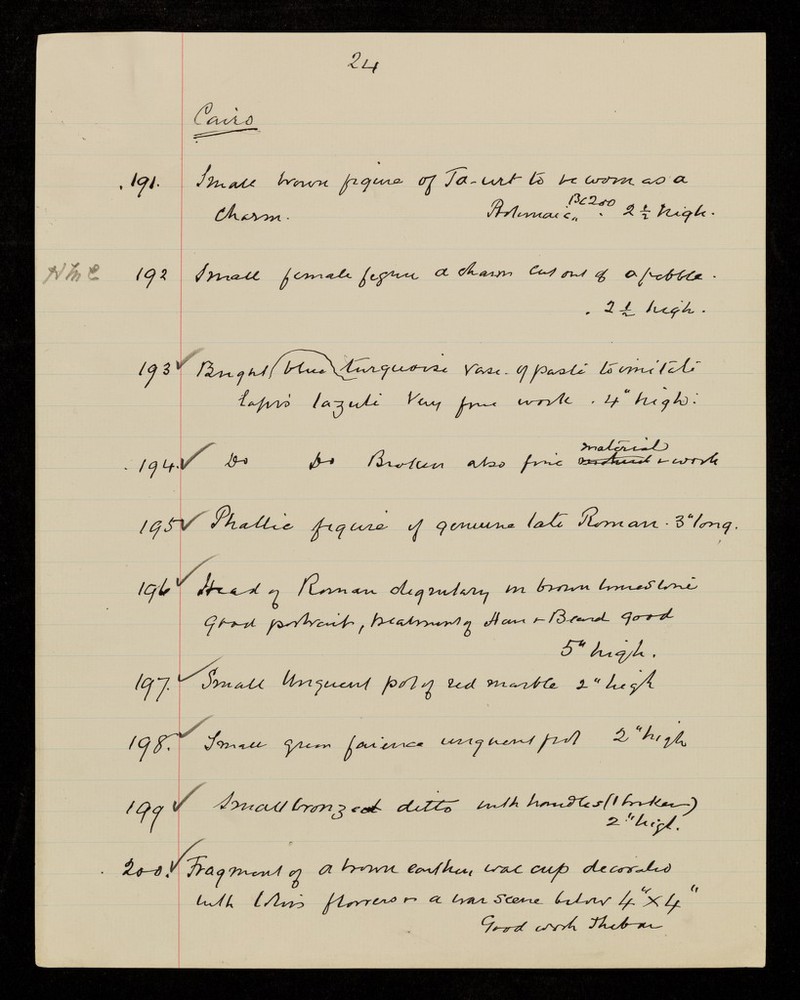 24
Cairo
191. Small brown figure of Ta-urt to be worn as a
charm. Ptolemaic BC 200 . 2 1/2 high.
192 Small female figure a charm cut out of a pebble.
. 2 1/2 high.
193 ✓ Bright (blue) turquoise vase of paste to imitate
lapis lazuli Very fine work . 4" high.
194. ✓ Do Do Broken also fine material + work
195 ✓ Phallic figure of genuine late Roman. 3" long.
196 ✓ Head of Roman dignitary in brown limestone
good portrait, treatment of Hair + Beard good
5" high.
197. ✓ Small Unguent pot of red marble 2" high
198. ✓ Small green faience unguent pot 2" high
199 ✓ Small bronze ditto with handles (1 broken)
2" high.
200. ✓ Fragment of a brown earthen ware cup decorated
with lotus flowers a war scene below 4" x 4"
Good work Theban